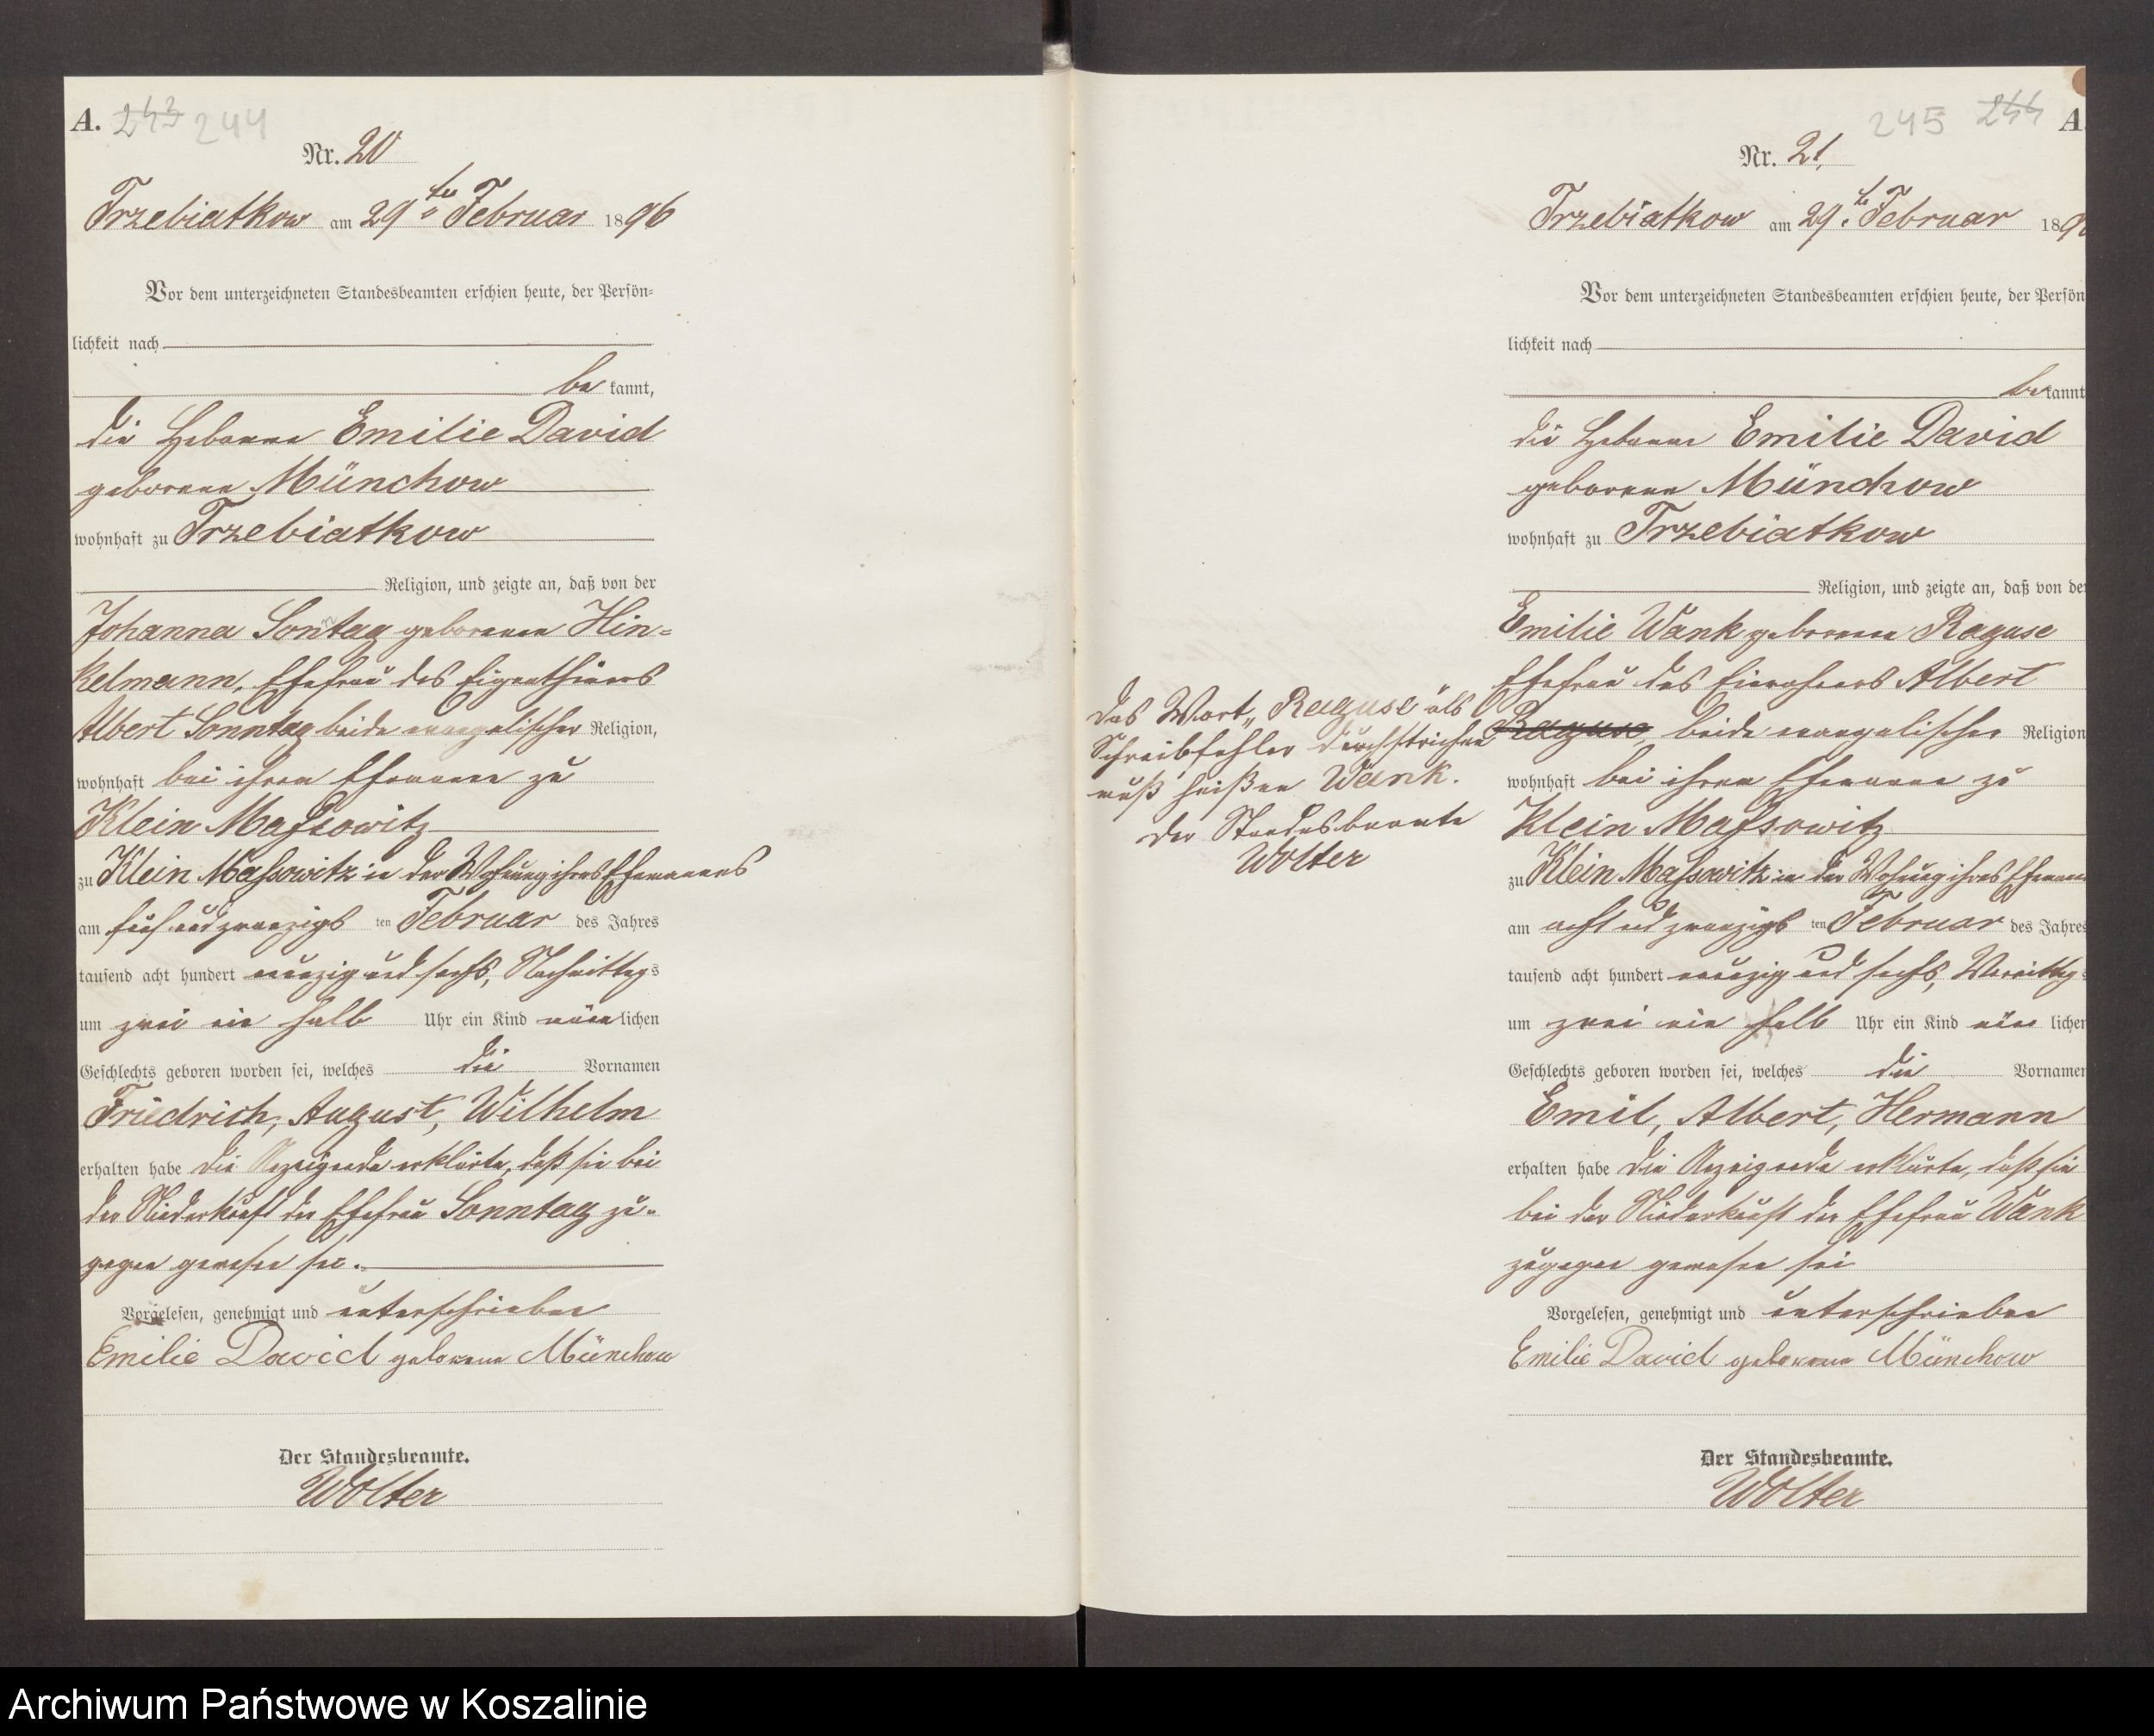 A. 243 244
Nr. 20
Trzebiatkow am 29ten Februar 1896
Vor dem unterzeichneten Standesbeamten erschien heute, der Persön-
lichkeit nach
be kannt,
die Hebamme Emilie David
geborene Münchow
wohnhaft zu Trzebiatkow
Religion, und zeigte an, daß von der
Johanna Sontag geborenen Hin-
kelmann, Ehefrau des Eigenthümers
Albert Sonntag beide evangelischer Religion,
wohnhaft bei ihrem Ehemanne zu
Klein Massowitz
zu Klein Massowitz in der Wohnung ihres Ehemannes
am fünf und zwanzigs ten Februar des Jahres
tausend acht hundert neunzig und sechs, Nachmittags
um zwei ein halb Uhr ein Kind männ lichen
Geschlechts geboren worden sei, welches die Vornamen
Friedrich, August, Wilhelm
erhalten habe die Anzeigende erklärte, daß sie bei
der Niederkunft der Ehefrau Sonntag zu-
gegen gewesen sei.
Vorgelesen, genehmigt und unterschrieben
Emilie David geborene Münchow
Der Standesbeamte.
Wolter
245 244 A
Nr. 21.
Trzebiatkow am 29.te Februar 189
Vor dem unterzeichneten Standesbeamten erschien heute, der Persön
lichkeit nach
be kannt
die Hebamme Emilie David
geborene Münchow
wohnhaft zu Trzebiatkow
Religion, und zeigte an, daß von der
Emilie Wank geborene Raguse
Ehefrau des Einwohners Albert
Raguse, beide evangelischer Religion
wohnhaft bei ihrem Ehemanne zu
Klein Massowitz
zu Klein Massowitz in der Wohnung ihres Ehemann
am acht und zwanzigs ten Februar des Jahres
tausend acht hundert neunzig und sechs, Vormittag s
um zwei ein halb Uhr ein Kind männ lichen
Geschlechts geboren worden sei, welches die Vornamen
Emil, Albert, Hermann
erhalten habe die Anzeigende erklärte, daß sie
bei der Niederkunft der Ehefrau Wank
zugegen gewesen sei
Vorgelesen, genehmigt und unterschrieben
Emilie David geborene Münchow
Der Standesbeamte.
Wolter
Das Wort „Raguse" als
Schreibfehler durchstrichen
muß heißen Wank.
Der Standesbeamte
Wolter
Archiwum Państwowe w Koszalinie